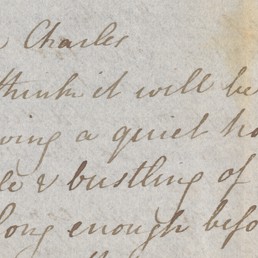 Charles
think it will be
a quiet
& bustling of
long enough befo